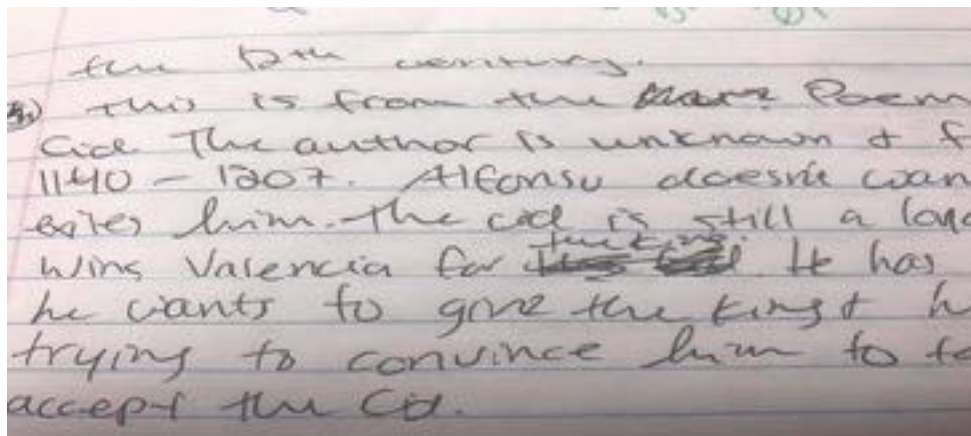 the 12th century.
This is from the Poem
Cid The author is unknown & f
1140 - 1207. Alfonsu doesn't wan
exiles him. The cid is still a loya
the king.
wins Valencia for He has
he wants to give the king & h
trying to convince him to ta
accept the Cid.